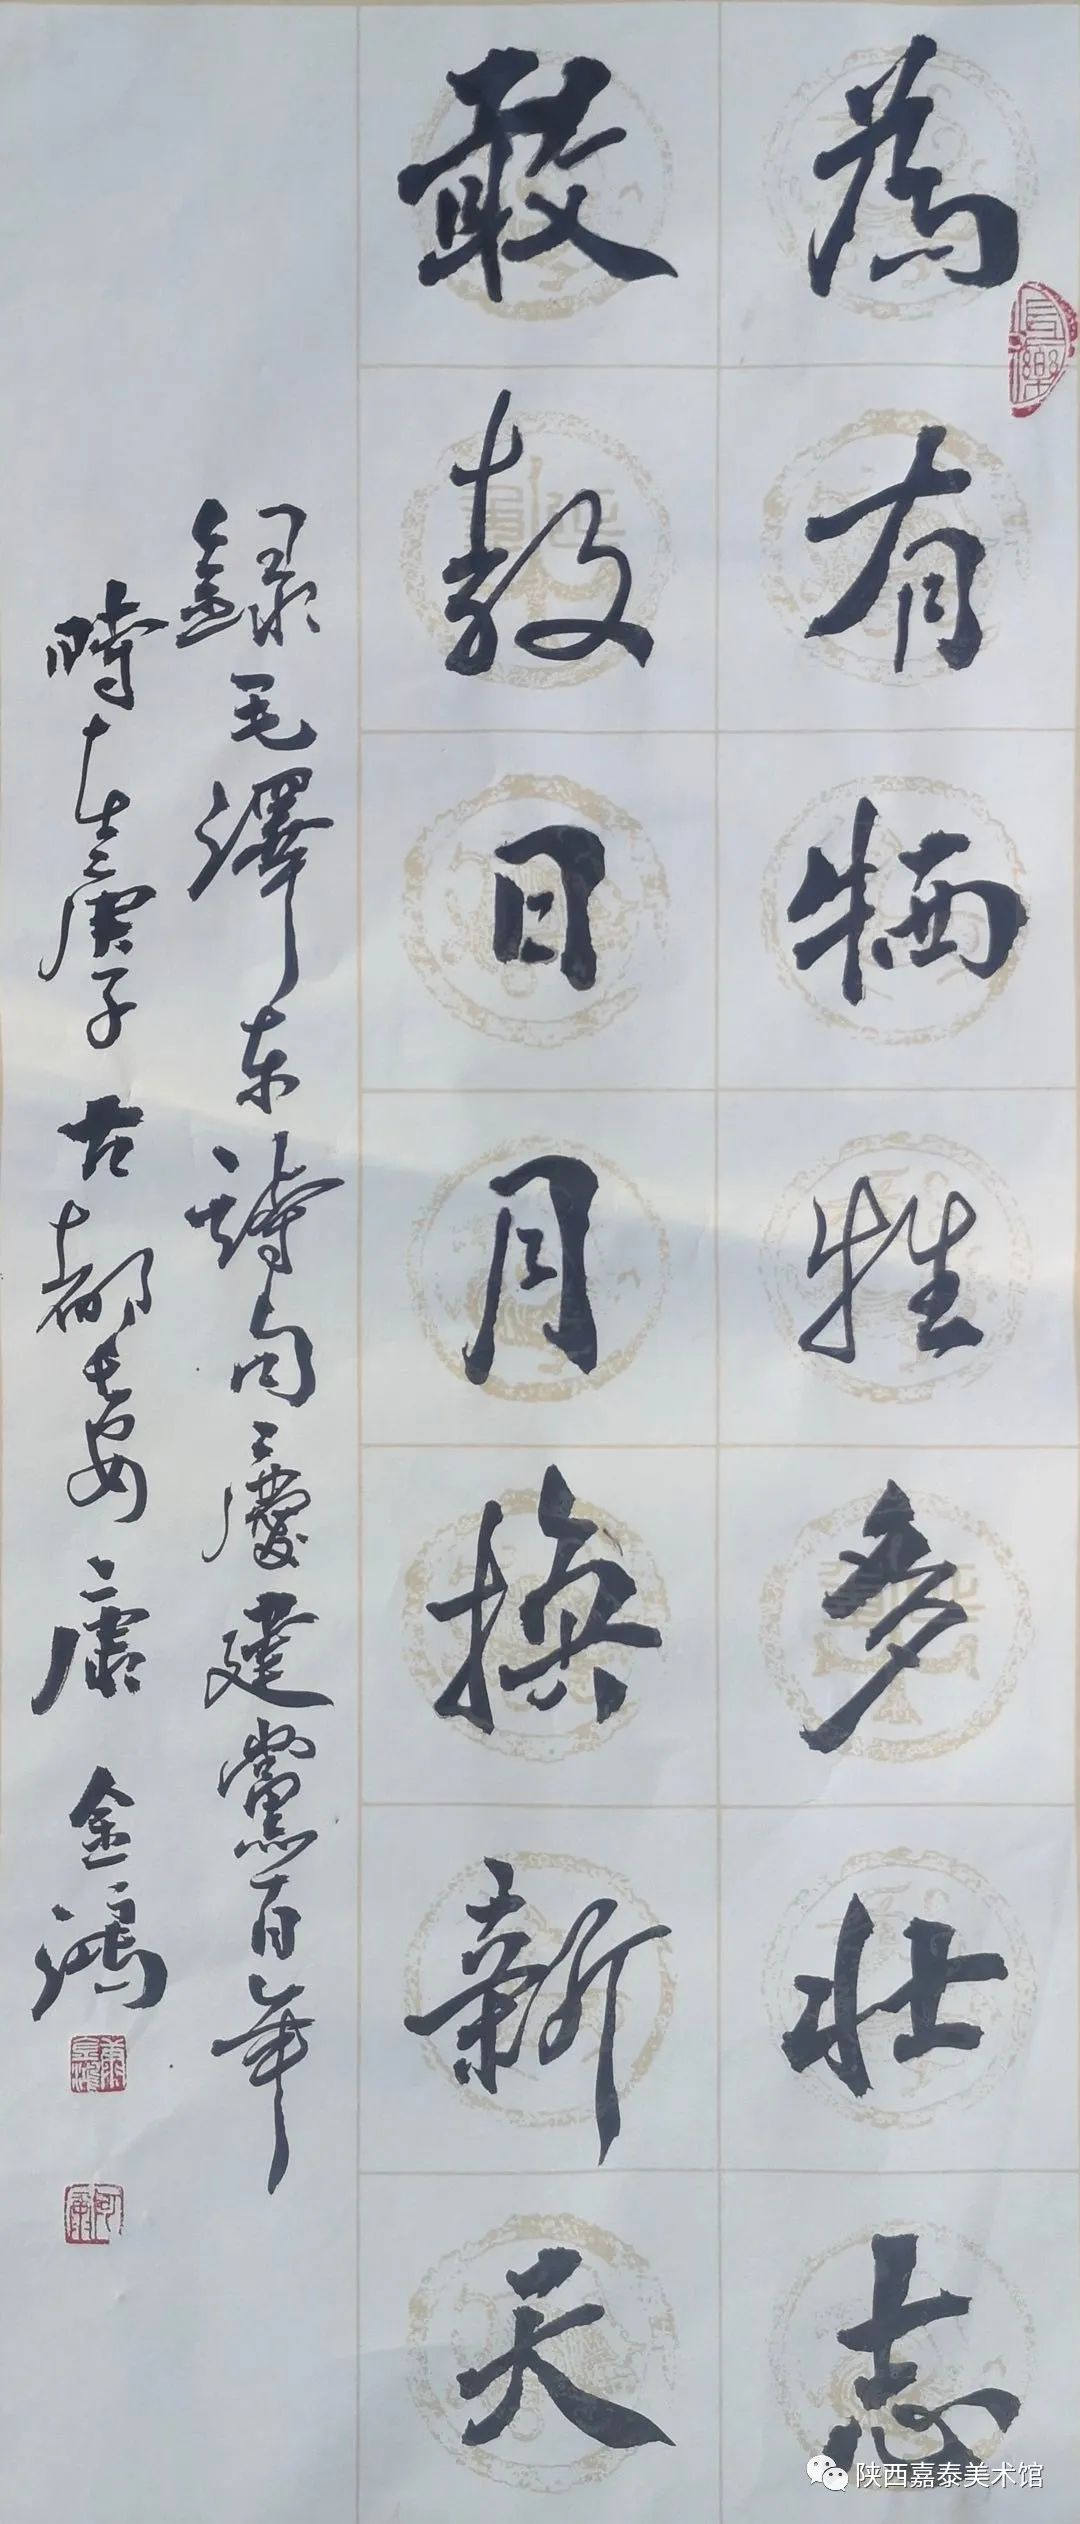 為有牺牲多壮志
敢教日月换新天
錄毛澤东詩句慶建黨百年
時在庚子古都長安康金鴻
陕西嘉泰美术馆